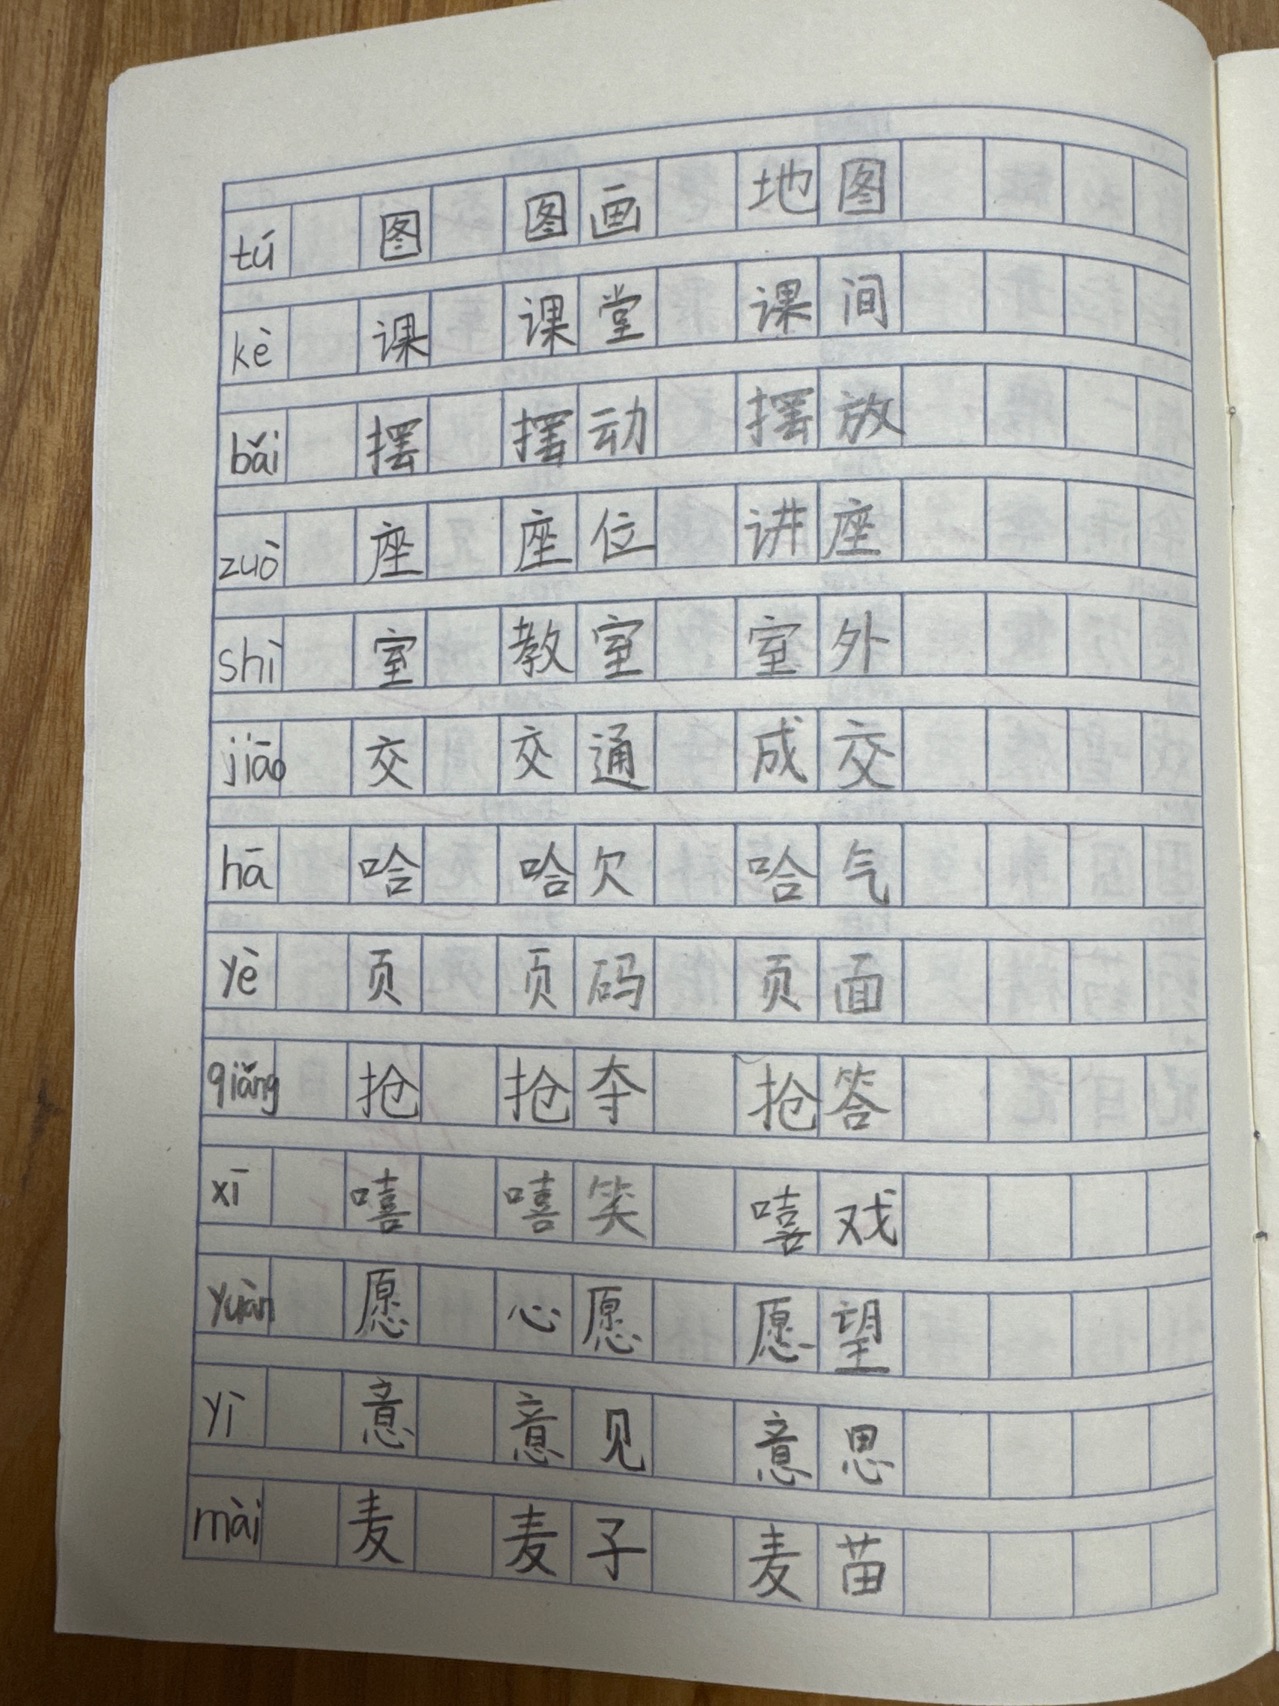 tú 图 图画 地图
kè 课 课堂 课间
bǎi 摆 摆动 摆放
zuò 座 座位 讲座
shì 室 教室 室外
jiāo 交 交通 成交
hā 哈 哈欠 哈气
yè 页 页码 页面
qiǎng 抢 抢夺 抢答
xī 嘻 嘻笑 嘻戏
yuàn 愿 心愿 愿望
yì 意 意见 意思
mài 麦 麦子 麦苗